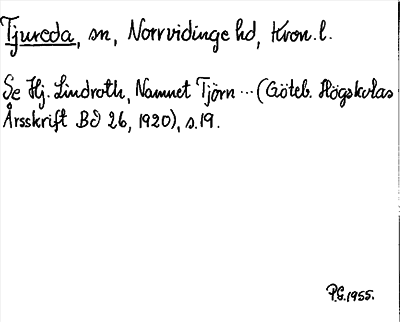 Tjureda, sn, Norrvidinge hd, Kron.l.
Se Hj. Lindroth, Namnet Tjörn ... (Göteb. Högskolas
Årsskrift Bd 26, 1920), s.19.
P.G.1955.